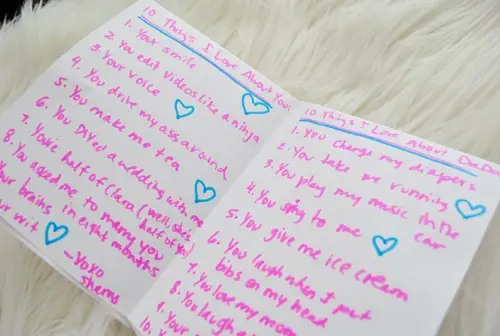 10 Things I Love About You:
1. Your smile
2. You edit videos like a ninja
3. Your voice
4. You drive my ass around
5. You make me tea
6. You DIYed a wedding with me
7. You're half of Clara (well she's half of you)
8. You asked me to marry you
Your brains in eight months
wit
- Yoxo
10 Things I Love About DaDa
1. You change my diapers
2. You take me running
3. You play my music in the car
4. You sing to me
5. You give me ice cream
6. You laugh when I put
bibs on my head
7. You love my mom
8. You laugh
9. Your
10. Y